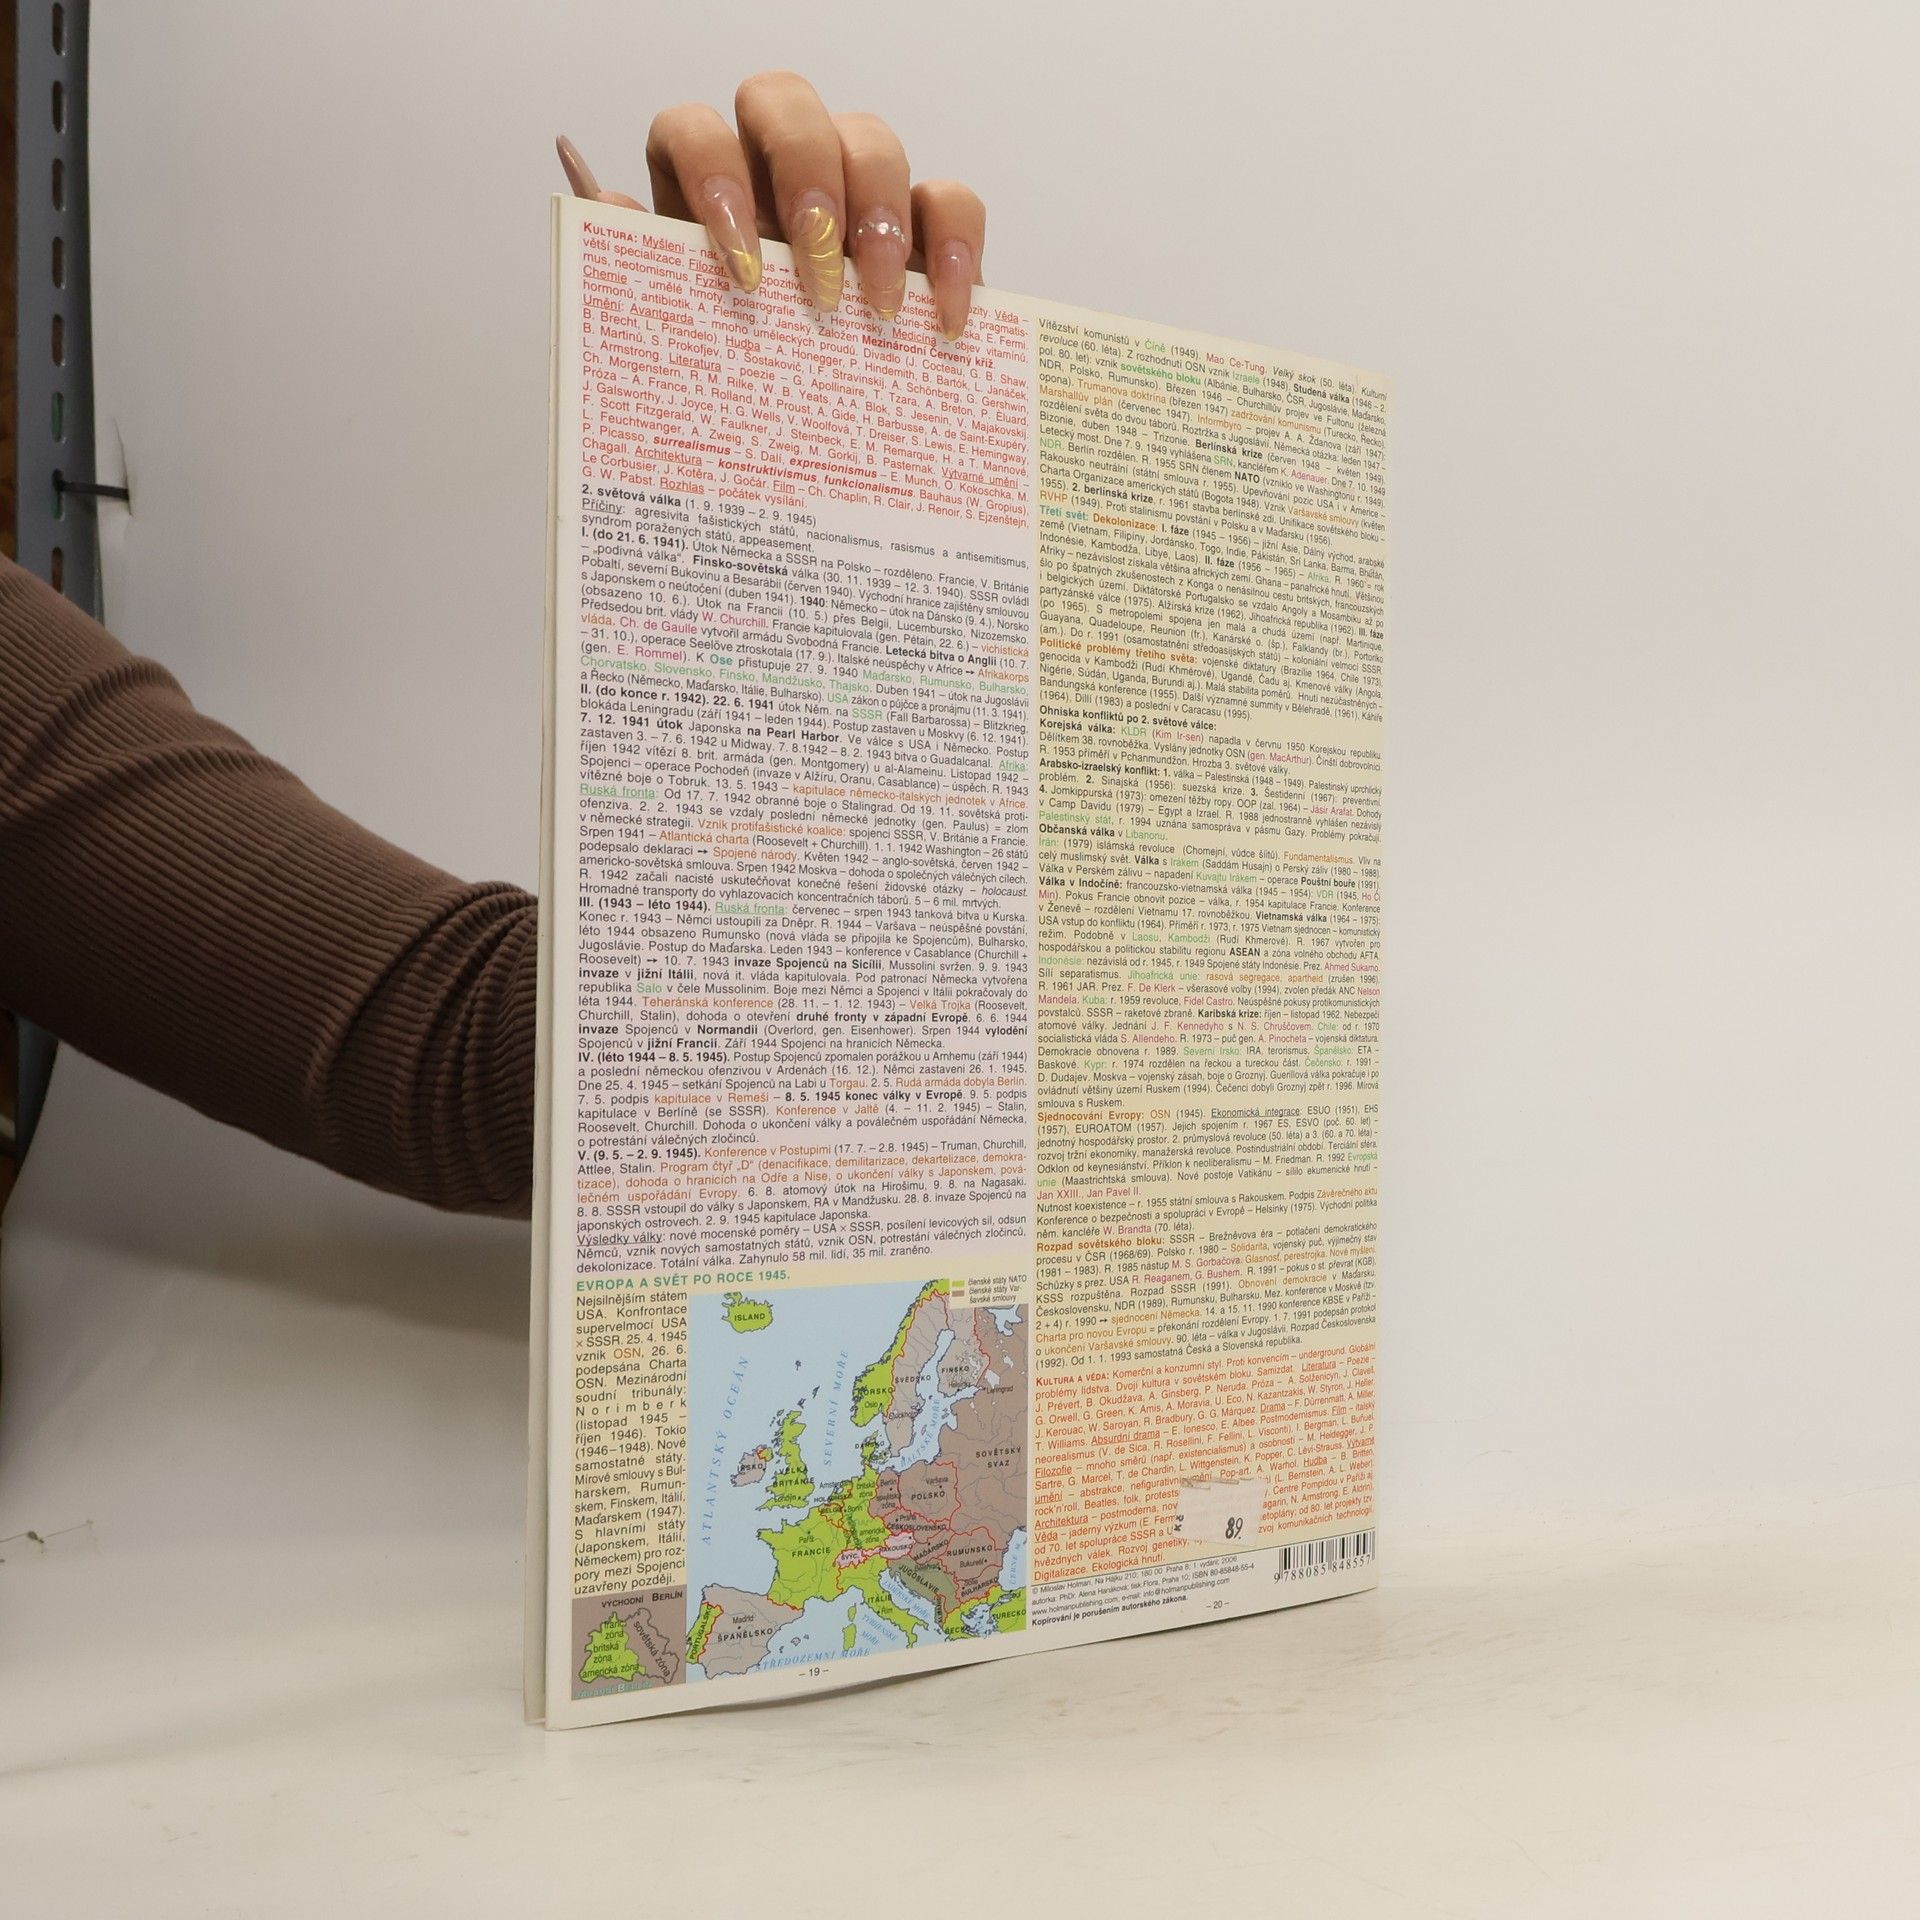 KULTURA: Myšlení –
větší specializace.
mus, neotomismus. Fyzika – Rutherford, Curie, E. Fermi.
Chemie – umělé hmoty, polarografie – J. Heyrovský. Medicína – objev vitamínů,
hormonů, antibiotik. A. Fleming, J. Janský. Založen Mezinárodní Červený kříž.
Umění: Avantgarda – mnoho uměleckých proudů. Divadlo (J. Cocteau, G. B. Shaw,
B. Brecht, L. Pirandelo). Hudba – A. Honegger, P. Hindemith, B. Bartók, L. Janáček,
B. Martinů, S. Prokofjev, D. Šostakovič, I. F. Stravinskij, A. Schönberg, G. Gershwin,
L. Armstrong. Literatura – poezie – G. Apollinaire, T. Tzara, A. Breton, P. Éluard,
Ch. Morgenstern, R. M. Rilke, W. B. Yeats, A. A. Blok, S. Jesenin, V. Majakovskij.
Próza – A. France, R. Rolland, M. Proust, A. Gide, H. Barbusse, A. de Saint-Exupéry,
J. Galsworthy, J. Joyce, H. G. Wells, V. Woolfová, T. Dreiser, S. Lewis, E. Hemingway,
F. Scott Fitzgerald, W. Faulkner, J. Steinbeck, E. M. Remarque, H. a T. Mannové,
L. Feuchtwanger, A. Zweig, S. Zweig, M. Gorkij, B. Pasternak. Výtvarné umění –
P. Picasso, surrealismus – S. Dalí, expresionismus – E. Munch, O. Kokoschka, M.
Chagall. Architektura – konstruktivismus, funkcionalismus, Bauhaus (W. Gropius),
Le Corbusier, J. Kotěra, J. Gočár. Film – Ch. Chaplin, R. Clair, J. Renoir, S. Ejzenštejn,
G. W. Pabst. Rozhlas – počátek vysílání.
2. světová válka (1. 9. 1939 – 2. 9. 1945)
Příčiny: agresivita fašistických států, nacionalismus, rasismus a antisemitismus,
syndrom poražených států, appeasement.
I. (do 21. 6. 1941). Útok Německa a SSSR na Polsko – rozděleno. Francie, V. Británie
– „podivná válka“. Finsko-sovětská válka (30. 11. 1939 – 12. 3. 1940). SSSR ovládl
Pobaltí, severní Bukovinu a Besarábii (červen 1940). Východní hranice zajištěny smlouvou
s Japonskem o neútočení (duben 1941). 1940: Německo – útok na Dánsko (9. 4.), Norsko
(obsazeno 10. 6.). Útok na Francii (10. 5.) přes Belgii, Lucembursko, Nizozemsko.
Předsedou brit. vlády W. Churchill. Francie kapitulovala (gen. Pétain, 22. 6.) – vichistická
vláda. Ch. de Gaulle vytvořil armádu Svobodná Francie. Letecká bitva o Anglii (10. 7.
– 31. 10.), operace Seelöve ztroskotala (17. 9.). Italské neúspěchy v Africe → Afrikakorps
(gen. E. Rommel). K Ose přistupuje 27. 9. 1940 Maďarsko, Rumunsko, Bulharsko,
Chorvatsko, Slovensko, Finsko, Mandžusko, Thajsko. Duben 1941 – útok na Jugoslávii
a Řecko (Německo, Maďarsko, Itálie, Bulharsko). USA zákon o půjčce a pronájmu (11. 3. 1941).
II. (do konce r. 1942). 22. 6. 1941 útok Něm. na SSSR (Fall Barbarossa) – Blitzkrieg,
blokáda Leningradu (září 1941 – leden 1944). Postup zastaven u Moskvy (6. 12. 1941).
7. 12. 1941 útok Japonska na Pearl Harbor. Ve válce s USA i Německo. Postup
zastaven 3. – 7. 6. 1942 u Midway. 7. 8.1942 – 8. 2. 1943 bitva o Guadalcanal. Afrika:
říjen 1942 vítězí 8. brit. armáda (gen. Montgomery) u al-Alameinu. Listopad 1942 –
Spojenci – operace Pochodeň (invaze v Alžíru, Oranu, Casablance) – úspěch. R. 1943
vítězné boje o Tobruk. 13. 5. 1943 – kapitulace německo-italských jednotek v Africe.
Ruská fronta: Od 17. 7. 1942 obranné boje o Stalingrad. Od 19. 11. sovětská proti-
ofenziva. 2. 2. 1943 se vzdaly poslední německé jednotky (gen. Paulus) = zlom
v německé strategii. Vznik protifašistické koalice: spojenci SSSR, V. Británie a Francie.
Srpen 1941 – Atlantická charta (Roosevelt + Churchill). 1. 1. 1942 Washington – 26 států
podepsalo deklaraci → Spojené národy. Květen 1942 – anglo-sovětská, červen 1942 –
americko-sovětská smlouva. Srpen 1942 Moskva – dohoda o společných válečných cílech.
R. 1942 začali nacisté uskutečňovat konečné řešení židovské otázky – holocaust.
Hromadné transporty do vyhlazovacích koncentračních táborů. 5 – 6 mil. mrtvých.
III. (1943 – léto 1944). Ruská fronta: červenec – srpen 1943 tanková bitva u Kurska.
Konec r. 1943 – Němci ustoupili za Dněpr. R. 1944 – Varšava – neúspěšné povstání,
léto 1944 obsazeno Rumunsko (nová vláda se připojila ke Spojencům), Bulharsko,
Jugoslávie. Postup do Maďarska. Leden 1943 – konference v Casablance (Churchill +
Roosevelt) → 10. 7. 1943 invaze Spojenců na Sicílii, Mussolini svržen. 9. 9. 1943
invaze v jižní Itálii, nová it. vláda kapitulovala. Pod patronací Německa vytvořena
republika Salo v čele Mussolinim. Boje mezi Němci a Spojenci v Itálii pokračovaly do
léta 1944. Teheránská konference (28. 11. – 1. 12. 1943) – Velká Trojka (Roosevelt,
Churchill, Stalin), dohoda o otevření druhé fronty v západní Evropě. 6. 6. 1944
invaze Spojenců v Normandii (Overlord, gen. Eisenhower). Srpen 1944 vylodění
Spojenců v jižní Francii. Září 1944 Spojenci na hranicích Německa.
IV. (léto 1944 – 8. 5. 1945). Postup Spojenců zpomalen porážkou u Arnhemu (září 1944)
a poslední německou ofenzivou v Ardenách (16. 12.). Němci zastaveni 26. 1. 1945.
Dne 25. 4. 1945 – setkání Spojenců na Labi u Torgau. 2. 5. Rudá armáda dobyla Berlín.
7. 5. podpis kapitulace v Remeši – 8. 5. 1945 konec války v Evropě. 9. 5. podpis
kapitulace v Berlíně (se SSSR). Konference v Jaltě (4. – 11. 2. 1945) – Stalin,
Roosevelt, Churchill. Dohoda o ukončení války a poválečném uspořádání Německa,
o potrestání válečných zločinců.
V. (9. 5. – 2. 9. 1945). Konference v Postupimi (17. 7. – 2.8. 1945) – Truman, Churchill,
Attlee, Stalin. Program čtyř „D“ (denacifikace, demilitarizace, dekartelizace, demokra-
tizace), dohoda o hranicích na Odře a Nise, o ukončení války s Japonskem, pová-
lečném uspořádání Evropy. 6. 8. atomový útok na Hirošimu, 9. 8. na Nagasaki.
8. 8. SSSR vstoupil do války s Japonskem, RA v Mandžusku. 28. 8. invaze Spojenců na
japonských ostrovech. 2. 9. 1945 kapitulace Japonska.
Výsledky války: nové mocenské poměry – USA × SSSR, posílení levicových sil, odsun
Němců, vznik nových samostatných států, vznik OSN, potrestání válečných zločinců,
dekolonizace. Totální válka. Zahynulo 58 mil. lidí, 35 mil. zraněno.
EVROPA A SVĚT PO ROCE 1945.
Nejsilnějším státem
USA. Konfrontace
supervelmocí USA
× SSSR. 25. 4. 1945
vznik OSN, 26. 6.
podepsána Charta
OSN. Mezinárodní
soudní tribunály:
Norimberk
(listopad 1945 –
říjen 1946). Tokio
(1946–1948). Nové
samostatné státy.
Mírové smlouvy s Bul-
harskem, Rumun-
skem, Finskem, Itálií,
Maďarskem (1947).
S hlavními státy
(Japonskem, Itálií,
Německem) pro roz-
pory mezi Spojenci
uzavřeny později.
členské státy NATO
členské státy Var-
šavské smlouvy
ISLAND
ATLANTSKÝ OCEÁN
SEVERNÍ MOŘE
NORSKO
Oslo
ŠVÉDSKO
FINSKO
Leningrad
BALTSKÉ MOŘE
SOVĚTSKÝ
SVAZ
IRSKO
VELKÁ
BRITÁNIE
Londýn
POLSKO
Varšava
Berlín
Bonn
Praha
ČESKOSLOVENSKO
Paříž
FRANCIE
ŠVÝC.
RAKOUSKO
MAĎARSKO
RUMUNSKO
Bukurešť
JUGOSLÁVIE
BULHARSKO
ITÁLIE
Řím
TURECKO
Madrid
ŠPANĚLSKO
PORTUGALSKO
TYRHÉNSKÉ
MOŘE
STŘEDOZEMNÍ MOŘE
VÝCHODNÍ BERLÍN
franc.
zóna
britská
zóna
americká zóna
sovětská zóna
– 19 –
Vítězství komunistů v Číně (1949). Mao Ce-Tung. Velký skok (50. léta). Kulturní
revoluce (60. léta). Z rozhodnutí OSN vznik Izraele (1948). Studená válka (1946 – 2.
pol. 80. let): vznik sovětského bloku (Albánie, Bulharsko, ČSR, Jugoslávie, Maďarsko,
NDR, Polsko, Rumunsko). Březen 1946 – Churchillův projev ve Fultonu (železná
opona). Trumanova doktrina (březen 1947) zadržování komunismu (Turecko, Řecko).
Marshallův plán (červenec 1947). Informbyro – projev A. A. Ždanova (září 1947):
rozdělení světa do dvou táborů. Roztržka s Jugoslávií. Německá otázka: leden 1947 –
Bizonie, duben 1948 – Trizonie. Berlínská krize (červen 1948 – květen 1949).
Letecký most. Dne 7. 9. 1949 vyhlášena SRN, kancléřem K. Adenauer. Dne 7. 10. 1949
NDR. Berlín rozdělen. R. 1955 SRN členem NATO (vzniklo ve Washingtonu r. 1949).
Rakousko neutrální (státní smlouva r. 1955). Upevňování pozic USA i v Americe –
Charta Organizace amerických států (Bogota 1948). Vznik Varšavské smlouvy (květen
1955). 2. berlínská krize, r. 1961 stavba berlínské zdi. Unifikace sovětského bloku –
RVHP (1949). Proti stalinismu povstání v Polsku a v Maďarsku (1956).
Třetí svět: Dekolonizace: I. fáze (1945 – 1956) – jižní Asie, Dálný východ, arabské
země (Vietnam, Filipíny, Jordánsko, Togo, Indie, Pákistán, Srí Lanka, Barma, Bhútán,
Indonésie, Kambodža, Libye, Laos). II. fáze (1956 – 1965) – Afrika. R. 1960 = rok
Afriky – nezávislost získala většina afrických zemí. Ghana – panafrické hnutí. Většinou
šlo po špatných zkušenostech z Konga o nenásilnou cestu britských, francouzských
i belgických území. Diktátorské Portugalsko se vzdalo Angoly a Mosambiku až po
partyzánské válce (1975). Alžírská krize (1962), Jihoafrická republika (1962). III. fáze
(po 1965). S metropolemi spojena jen malá a chudá území (např. Martinique,
Guayana, Quadeloupe, Reunion (fr.), Kanárské o. (šp.), Falklandy (br.), Portoriko
(am.). Do r. 1991 (osamostatnění středoasijských států) – koloniální velmocí SSSR.
Politické problémy třetího světa: vojenské diktatury (Brazílie 1964, Chile 1973),
genocida v Kambodži (Rudí Khmérové), Ugandě, Čadu aj. Kmenové války (Angola,
Nigérie, Súdán, Uganda, Burundi aj.). Malá stabilita poměrů. Hnutí nezúčastněných –
Bandungská konference (1955). Další významné summity v Bělehradě, (1961), Káhiře
(1964), Dillí (1983) a poslední v Caracasu (1995).
Ohniska konfliktů po 2. světové válce:
Korejská válka: KLDR (Kim Ir-sen) napadla v červnu 1950 Korejskou republiku.
Dělítkem 38. rovnoběžka. Vyslány jednotky OSN (gen. MacArthur). Čínští dobrovolníci.
R. 1953 příměří v Pchanmundžon. Hrozba 3. světové války.
Arabsko-izraelský konflikt: 1. válka – Palestinská (1948 – 1949). Palestinský uprchlický
problém. 2. Sinajská (1956): suezská krize. 3. Šestidenní (1967): preventivní.
4. Jomkippurská (1973): omezení těžby ropy. OOP (zal. 1964) – Jásir Arafat. Dohody
v Camp Davidu (1979) – Egypt a Izrael. R. 1988 jednostranně vyhlášen nezávislý
Palestinský stát, r. 1994 uznána samospráva v pásmu Gazy. Problémy pokračují.
Občanská válka v Libanonu.
Írán: (1979) islámská revoluce (Chomejní, vůdce šíitů). Fundamentalismus. Vliv na
celý muslimský svět. Válka s Irákem (Saddám Husajn) o Perský záliv (1980 – 1988).
Válka v Perském zálivu – napadení Kuvajtu Irákem – operace Pouštní bouře (1991).
Válka v Indočíně: francouzsko-vietnamská válka (1945 – 1954); VDR (1945, Ho Či
Min). Pokus Francie obnovit pozice – válka, r. 1954 kapitulace Francie. Konference
v Ženevě – rozdělení Vietnamu 17. rovnoběžkou. Vietnamská válka (1964 – 1975):
USA vstup do konfliktu (1964). Příměří r. 1973, r. 1975 Vietnam sjednocen – komunistický
režim. Podobně v Laosu, Kambodži (Rudí Khmérové). R. 1967 vytvořen pro
hospodářskou a politickou stabilitu regionu ASEAN a zóna volného obchodu AFTA.
Indonésie: nezávislá od r. 1945, r. 1949 Spojené státy Indonésie. Prez. Ahmed Sukarno.
Sílí separatismus. Jihoafrická unie: rasová segregace, apartheid (zrušen 1996).
R. 1961 JAR. Prez. F. De Klerk – všerasové volby (1994), zvolen předák ANC Nelson
Mandela. Kuba: r. 1959 revoluce, Fidel Castro. Neúspěšné pokusy protikomunistických
povstalců. SSSR – raketové zbraně. Karibská krize: říjen – listopad 1962. Nebezpečí
atomové války. Jednání J. F. Kennedyho s N. S. Chruščovem. Chile: od r. 1970
socialistická vláda S. Allendeho. R. 1973 – puč gen. A. Pinocheta – vojenská diktatura.
Demokracie obnovena r. 1989. Severní Irsko: IRA, terorismus. Španělsko: ETA –
Baskové. Kypr: r. 1974 rozdělen na řeckou a tureckou část. Čečensko: r. 1991 –
D. Dudajev. Moskva – vojenský zásah, boje o Groznyj. Guerillová válka pokračuje i po
ovládnutí většiny území Ruskem (1994). Čečenci dobyli Groznyj zpět r. 1996. Mírová
smlouva s Ruskem.
Sjednocování Evropy: OSN (1945). Ekonomická integrace: ESUO (1951), EHS
(1957), EUROATOM (1957). Jejich spojením r. 1967 ES, ESVO (poč. 60. let) –
jednotný hospodářský prostor. 2. průmyslová revoluce (50. léta) a 3. (60. a 70. léta) –
rozvoj tržní ekonomiky, manažerská revoluce. Postindustriální období. Terciální sféra.
Odklon od keynesiánství. Příklon k neoliberalismu – M. Friedman. R. 1992 Evropská
unie (Maastrichtská smlouva). Nové postoje Vatikánu – sílilo ekumenické hnutí –
Jan XXIII., Jan Pavel II.
Nutnost koexistence – r. 1955 státní smlouva s Rakouskem. Podpis Závěrečného aktu
Konference o bezpečnosti a spolupráci v Evropě – Helsinky (1975). Východní politika
něm. kancléře W. Brandta (70. léta).
Rozpad sovětského bloku: SSSR – Brežněvova éra – potlačení demokratického
procesu v ČSR (1968/69). Polsko r. 1980 – Solidarita, vojenský puč, výjimečný stav
(1981 – 1983). R. 1985 nástup M. S. Gorbačova. Glasnosť, perestrojka. Nové myšlení.
Schůzky s prez. USA R. Reaganem, G. Bushem. R. 1991 – pokus o st. převrat (KGB),
KSSS rozpuštěna. Rozpad SSSR (1991). Obnovení demokracie v Maďarsku,
Československu, NDR (1989), Rumunsku, Bulharsku. Mez. konference v Moskvě (tzv.
2 + 4) r. 1990 → sjednocení Německa. 14. a 15. 11. 1990 konference KBSE v Paříži –
Charta pro novou Evropu = překonání rozdělení Evropy. 1. 7. 1991 podepsán protokol
o ukončení Varšavské smlouvy. 90. léta – válka v Jugoslávii. Rozpad Československa
(1992). Od 1. 1. 1993 samostatná Česká a Slovenská republika.
KULTURA A VĚDA: Komerční a konzumní styl. Proti konvencím – underground. Globální
problémy lidstva. Dvojí kultura v sovětském bloku. Samizdat. Literatura – Poezie –
J. Prévert, B. Okudžava, A. Ginsberg, P. Neruda. Próza – A. Solženicyn, J. Clavel,
G. Orwell, G. Green, K. Amis, A. Moravia, U. Eco, N. Kazantzakis, W. Styron, J. Heller,
J. Kerouac, W. Saroyan, R. Bradbury, G. G. Márquez. Drama – F. Dürrenmatt, A. Miller,
T. Williams. Absurdní drama – E. Ionesco, E. Albee. Postmodernismus. Film – italský
neorealismus (V. de Sica, R. Rosellini, F. Fellini, L. Visconti), I. Bergman, L. Buñuel.
Filozofie – mnoho směrů (např. existencialismus) a osobností – M. Heidegger, J. P.
Sartre, G. Marcel, T. de Chardin, L. Wittgenstein, K. Popper, C. Lévi-Strauss. Výtvarné
umění – abstrakce, nefigurativní umění, Pop-art, A. Warhol. Hudba – B. Britten,
rock'n'roll, Beatles, folk, protest (L. Bernstein, A. L. Weber).
Architektura – postmoderna, Centre Pompidou v Paříži aj.
Věda – jaderný výzkum (E. Ferm agarin, N. Armstrong, E. Aldrin),
od 70. let spolupráce SSSR a U etoplány; od 80. let projekty tzv.
hvězdných válek. Rozvoj genetiky, zvoj komunikačních technologií.
Digitalizace. Ekologická hnutí.
Kč
89
© Miloslav Holman, Na Hájku 210; 180 00 Praha 8; 1. vydání; 2006
autorka: PhDr. Alena Hanáková; tisk Flora, Praha 10; ISBN 80-85848-55-4
www.holmanpublishing.com; e-mail: info@holmanpublishing.com
Kopírování je porušením autorského zákona.
9 788085 848557
– 20 –